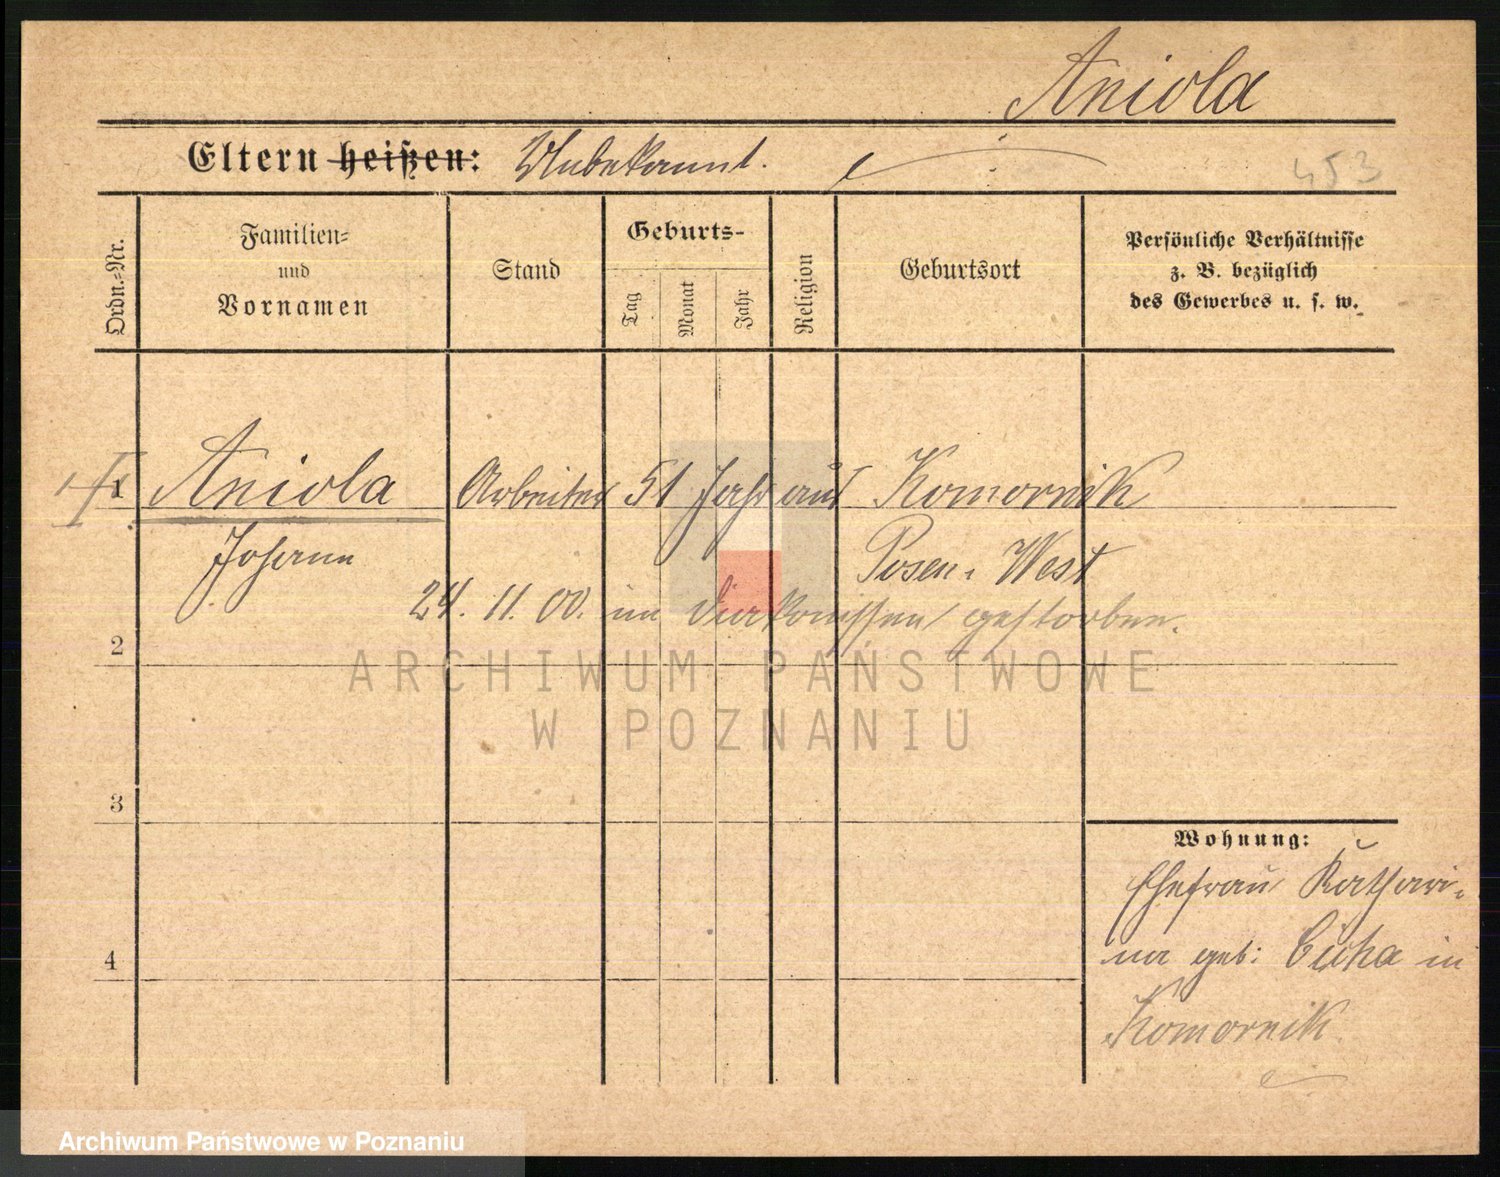 Aniola
Eltern heißen: Unbekannt.
453
Ordn.-Nr.
Familien-
und
Vornamen
Stand
Geburts-
Tag
Monat
Jahr
Religion
Geburtsort
Persönliche Verhältnisse
z. B. bezüglich
des Gewerbes u. s. w.
1 Aniola Arbeiter 51 Jahr aus Komornik
Johann Posen-West
24. 11. 00. im Diakonissen gestorben.
2
ARCHIWUM PAŃSTWOWE
W POZNANIU
3
Wohnung:
Ehefrau Kathari-
na geb: in
4
Komornik.
Archiwum Państwowe w Poznaniu